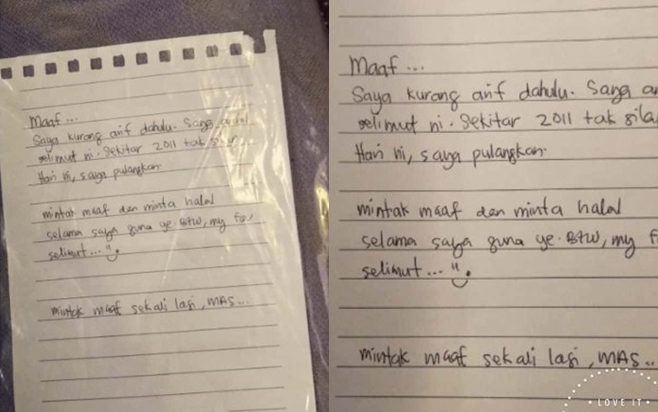 Maaf...
Saya kurang arif dahulu. Saya
selimut ni. Sekitar 2011 tak
Hari ni, saya pulangkan.
mintak maaf dan minta halal
selama saya guna ye. BTW, my
selimut... ".
mintak maaf sekali lagi, MAS...
Maaf...
Saya kurang arif dahulu. Saya
selimut ni. Sekitar 2011 tak
Hari ni, saya pulangkan.
mintak maaf dan minta halal
selama saya guna ye. BTW, my
selimut... ".
mintak maaf sekali lagi, MAS..
LOVE IT